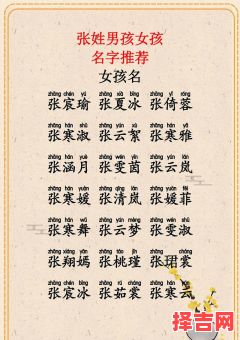 张姓男孩女孩
名字推荐
女孩名
zhāng chén yú zhāng xià bīng zhāng yǐ róng
张宸瑜 张夏冰 张倚蓉
zhāng hán shū zhāng yún xù zhāng hán yǎ
张寒淑 张云絮 张寒雅
zhāng hán yuè zhāng wén yīn zhāng yún lán
张涵月 张雯茵 张云岚
zhāng hán yuàn zhāng qīng lán zhāng yuàn fēi
张寒媛 张清岚 张媛菲
zhāng hán wǔ zhāng yún mèng zhāng wén shū
张寒舞 张云梦 张雯淑
zhāng xiáng yān zhāng táo jǐn zhāng jùn cháng
张翔嫣 张桃瑾 张珺裳
zhāng chén bīng zhāng rú cháng zhāng hán yún
张宸冰 张茹裳 张寒云
择吉网